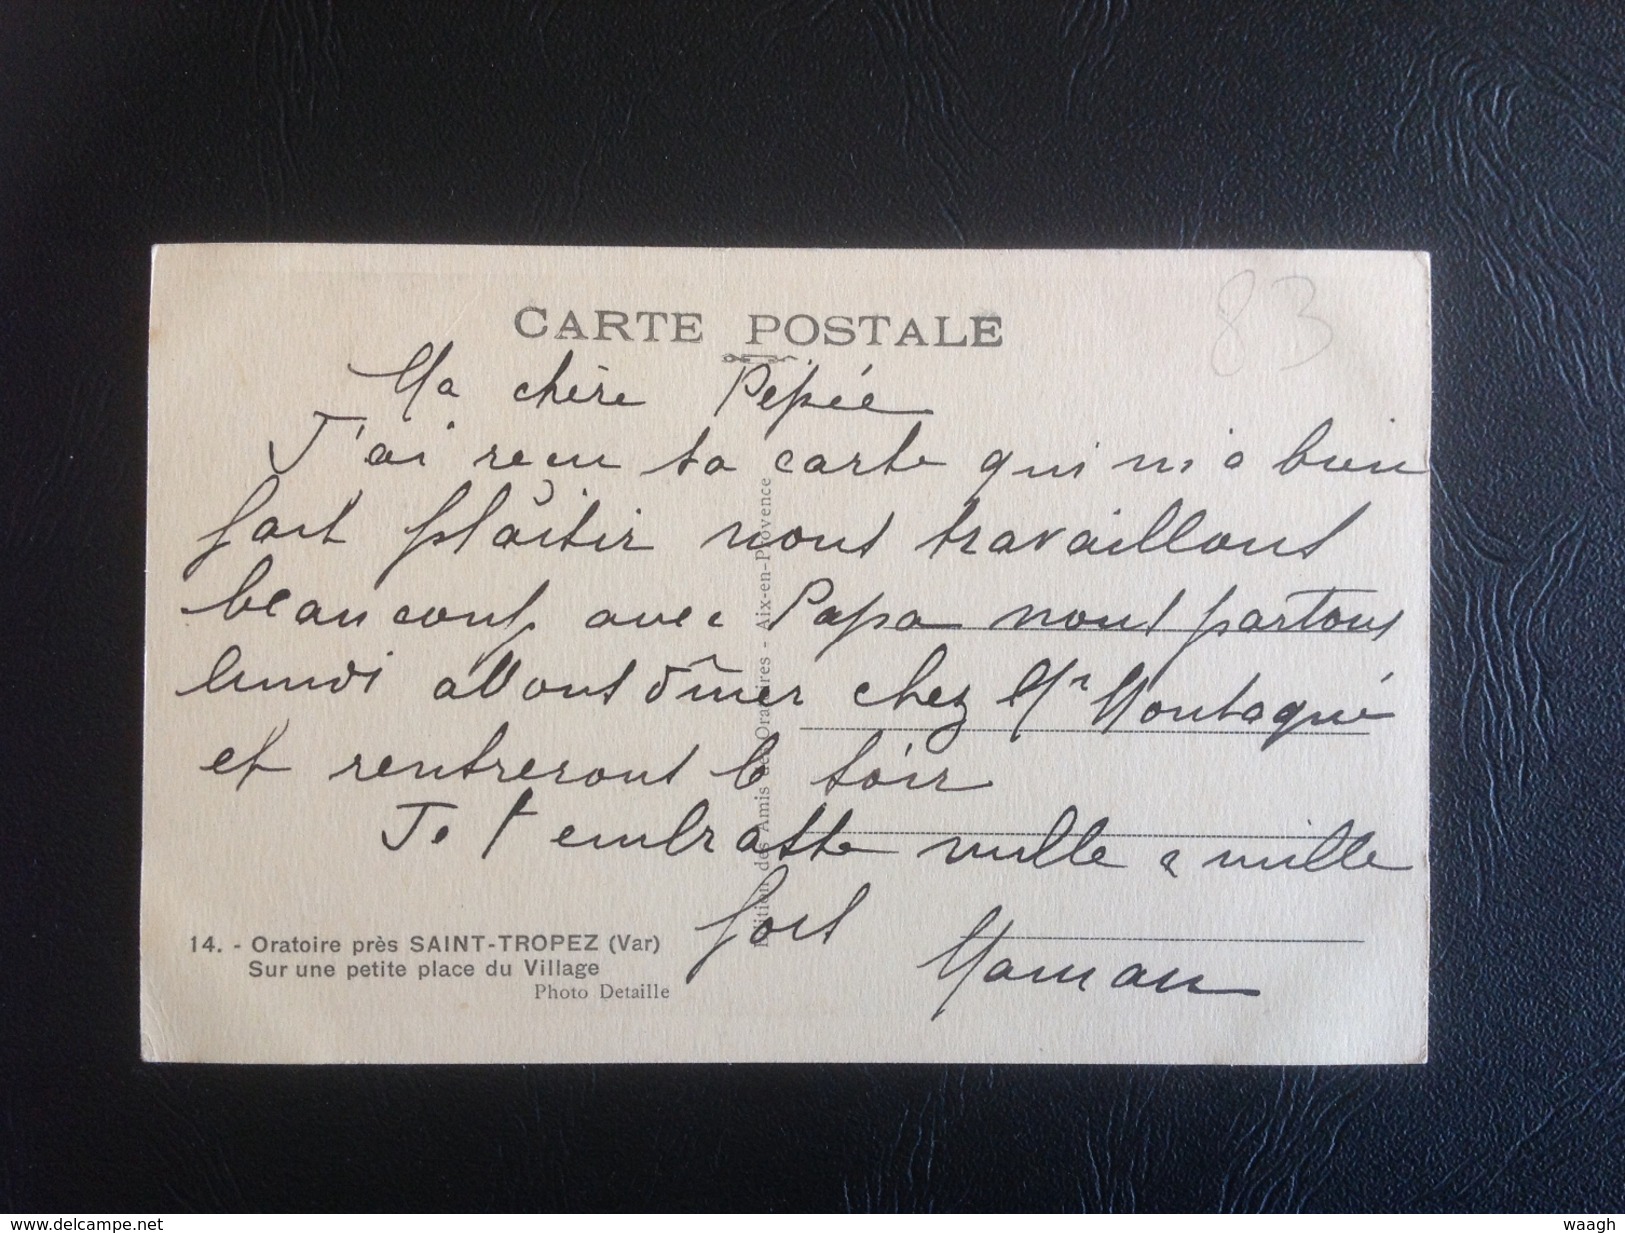 83
CARTE POSTALE
Ma chère Pépée
J'ai reçu ta carte qui m'a bien
fait plaisir nous travaillons
beaucoup avec Papa nous partons
lundi allons dîner chez Mr Montagné
et rentrerons le soir
Je t'embrasse mille e mille
fois Maman
Edition des Amis des Oratoires - Aix-en-Provence
14. - Oratoire près SAINT-TROPEZ (Var)
Sur une petite place du Village
Photo Detaille
www.delcampe.net
waagh